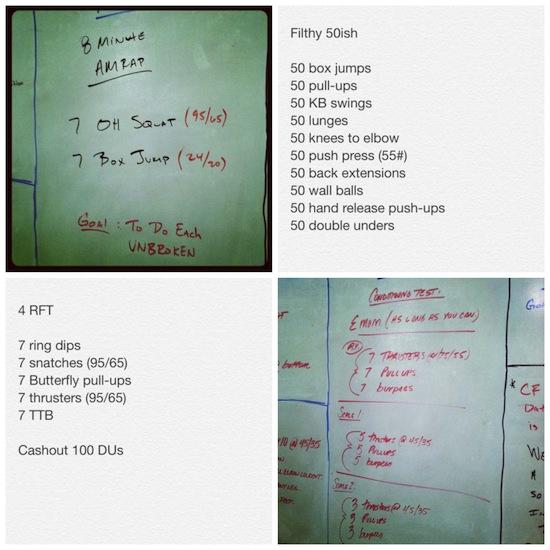 8 MINUTE
AMRAP
7 OH SQUAT (95/65)
7 BOX JUMP (24/20)
GOAL: TO DO EACH
UNBROKEN
Filthy 50ish
50 box jumps
50 pull-ups
50 KB swings
50 lunges
50 knees to elbow
50 push press (55#)
50 back extensions
50 wall balls
50 hand release push-ups
50 double unders
4 RFT
7 ring dips
7 snatches (95/65)
7 Butterfly pull-ups
7 thrusters (95/65)
7 TTB
Cashout 100 DUs
CONDITIONING TEST:
EMOM (AS LONG AS YOU CAN)
RX
7 THRUSTERS
7 PULLUPS
7 burpees
Scale 1:
5 thrusters @ 45/35
5 Pullups
5 burpees
Scale 2:
3 thrusters @ 45/35
3 Pullups
3 burpees
bottom
@ 45/35
Goal
* CF
is
We
A
So